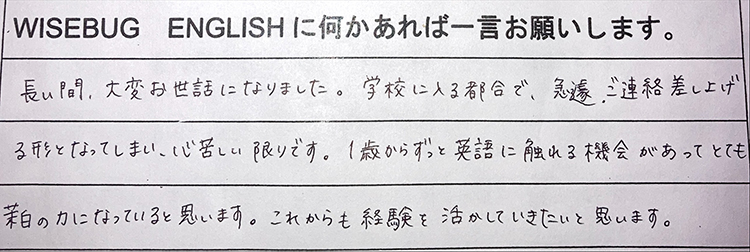 WISEBUG ENGLISH に何かあれば一言お願いします。
長い間、大変お世話になりました。学校に入る都合で、急遽、ご連絡差し上げ
る形となってしまい、心苦しい限りです。1歳からずっと英語に触れる機会があってとても
茉白の力になっていると思います。これからも経験を活かしていきたいと思います。